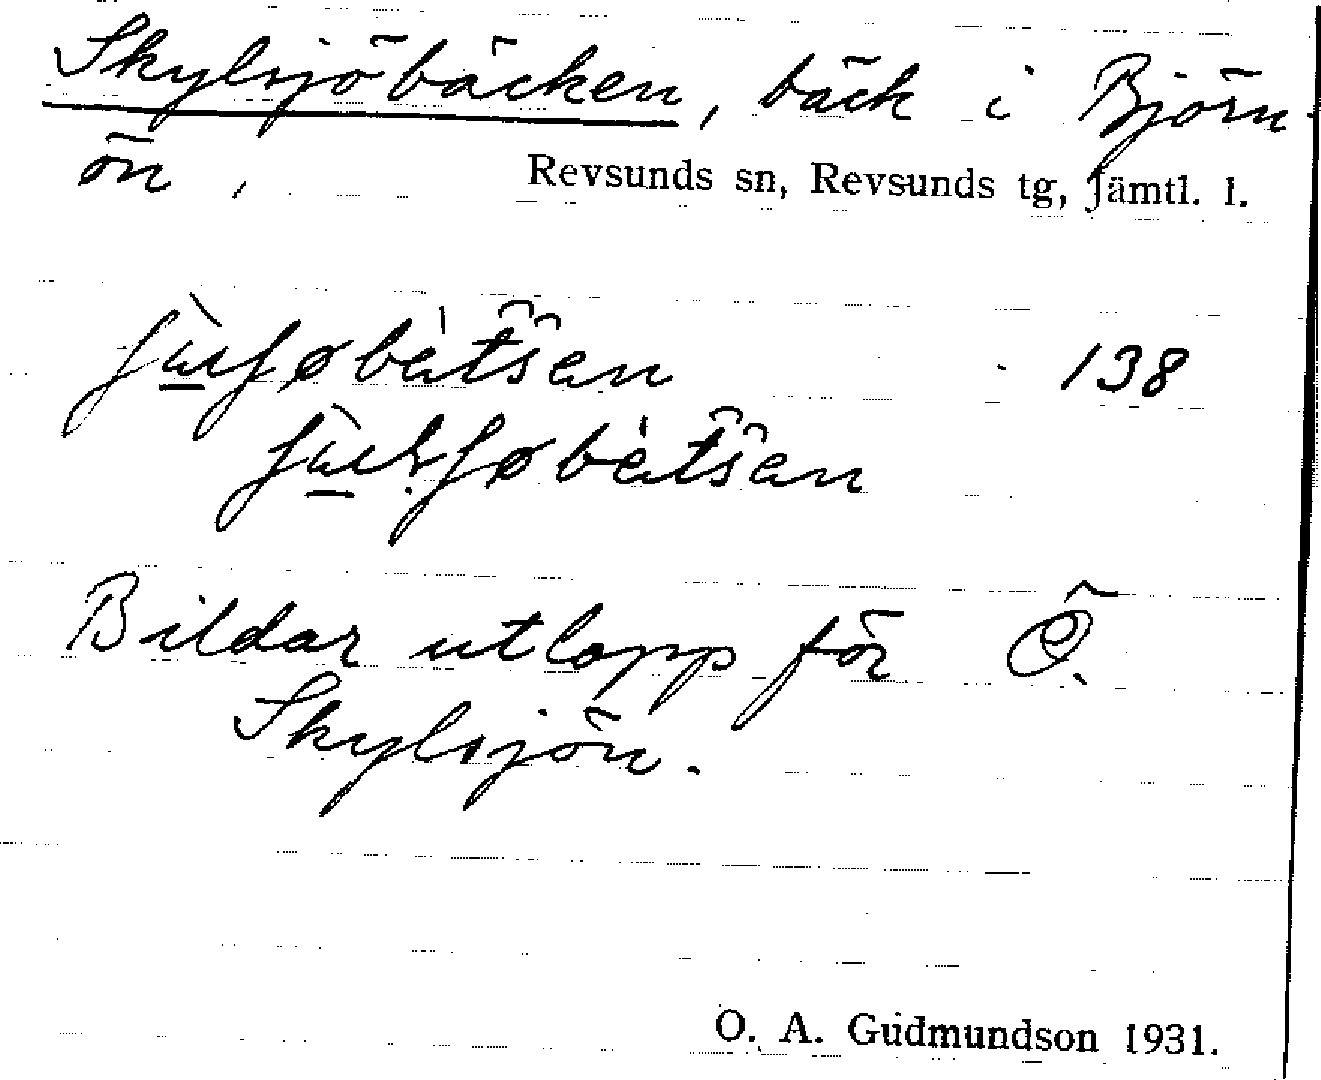 Skylsjöbäcken, bäck i Björn-
ön,
Revsunds sn, Revsunds tg, Jämtl. l.
138
Bildar utlopp för Ö.
Skylsjön.
O. A. Gudmundson 1931.